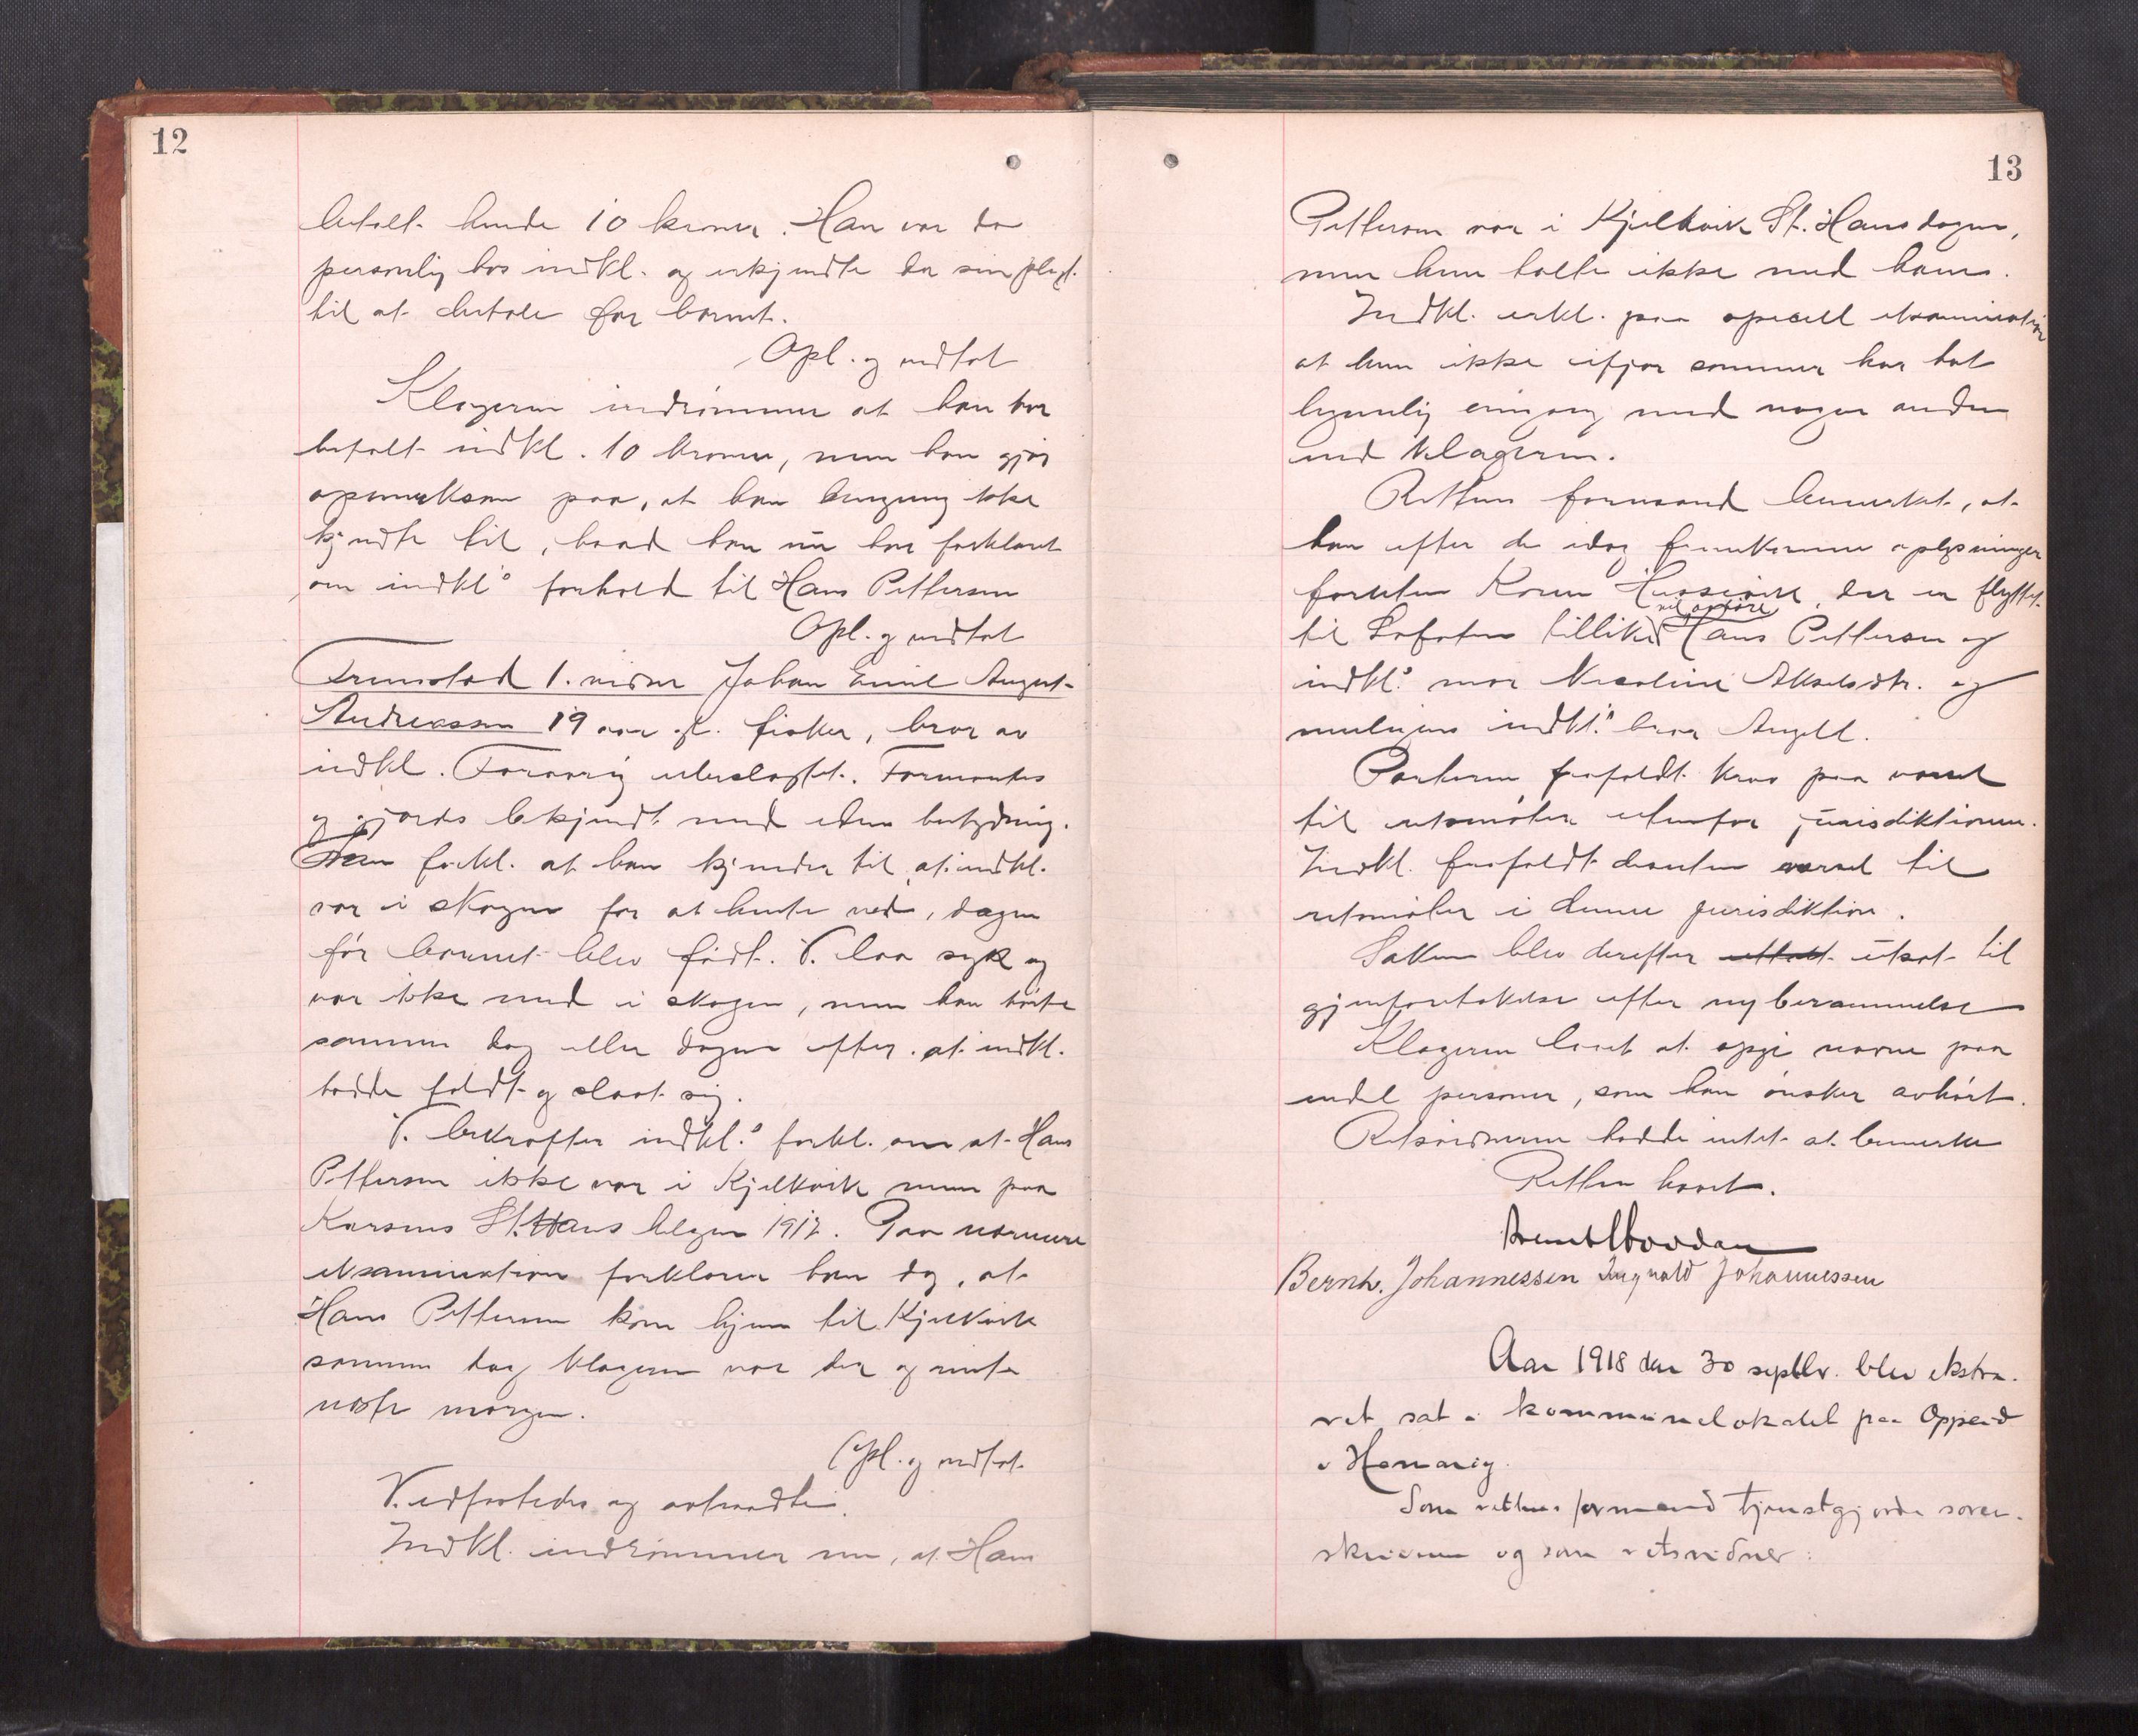 12
betalt hende 10 kroner. Han var da
personlig hos indkl. og erkjendte da sin pligt
til at betale for barnet.
Opl. og vedtat
Klageren indrømmer at han har
betalt indkl. 10 kroner, men han gjør
opmerksom paa, at han dengang ikke
kjendte til, hvad han nu har forklaret
om indkl's forhold til Hans Pettersen
Opl. og vedtat
Fremstod 1. vidne Johan Emil August
Andreassen 19 aar gl. fisker, bror av
indkl. Forøvrig ubeslægtet. Formantes
og gjordes bekjendt med eden betydning.
Han forkl. at han kjender til at indkl.
var i skogen for at hente ved, dagen
før barnet blev født. V. laa syk og
var ikke med i skogen, men han hørte
samme dag eller dagen efter at indkl.
hadde faldt og slaat sig.
V. bekræfter indkl.'s forkl. om at Hans
Pettersen ikke var i Kjelkvik men paa
Korsnes St. Hans helgen 1917. Paa nærmere
eksamination forklarer han dog, at
Hans Pettersen kom hjem til Kjelkvik
samme dag klageren var der og reiste
næste morgen.
Opl. og vedtat.
V. edfæstedes og
Indkl. indrømmer nu, at Hans
13
Pettersen var i Kjelkvik St. Hansdagen,
men hun talte ikke med ham.
Indkl. erkl. paa speciell eksamination
at hun ikke ifjor sommer har hat
legemlig omgang med nogen anden
end klageren.
Rettens formand bemerket, at
han efter de idag fremkomne oplysninger
foruten Karen der er flyttet
til Lofoten tillike vil avhøre Hans Pettersen og
indkl.'s mor Nicoline Akselsdtr. og
muligens indkl.'s bror Angell.
Parterne frafaldt krav paa varsel
til retsmøter utenfor jurisdiktionen.
Indkl. frafaldt desuten varsel til
retsmøter i denne jurisdiktion.
Saken blev derefter utsat til
gjenforetakelse efter ny berammelse
Klageren lovet at opgi navne paa
endel personer, som han ønsker avhørt.
Retsvidnerne hadde intet at bemerke
Retten hævet.
Bernh. Johannessen Ingvald Johannessen
Aar 1918 den 30 septbr. blev ekstra-
ret sat i kommunelokalet paa Oppeid
i Hamarøy.
Som rettens formand tjenstgjorde soren-
skriveren og som retsvidner: